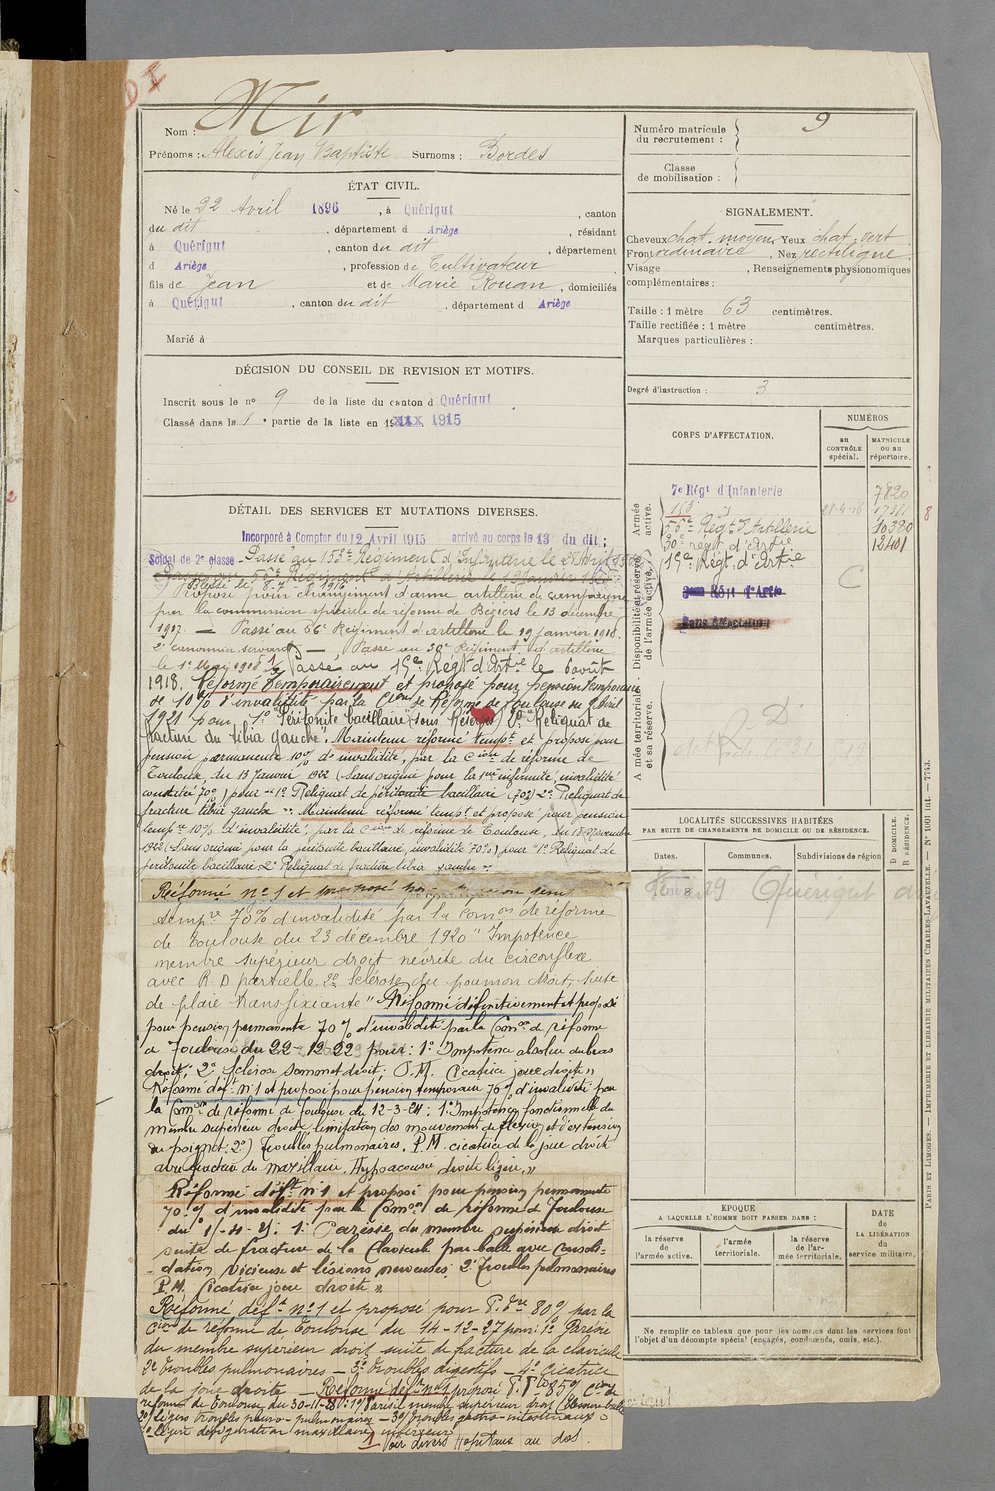 DI
Nom : Mir
Prénoms : Alexis Jean Baptiste Surnoms : Bordes
ÉTAT CIVIL.
Né le 22 Avril 1896, à Quérigut, canton
du dit, département d Ariège, résidant
à Quérigut, canton du dit, département
d Ariège, profession de Cultivateur
fils de Jean et de Marie Rouan, domiciliés
à Quérigut, canton du dit, département d Ariège
Marié à
DÉCISION DU CONSEIL DE REVISION ET MOTIFS.
Inscrit sous le n° 9 de la liste du canton d Quérigut
Classé dans la 1e partie de la liste en 19xxx 1915
DÉTAIL DES SERVICES ET MUTATIONS DIVERSES.
Incorporé à Compter du 12 Avril 1915 arrivé au corps le 13 du dit ;
Soldat de 2e classe Passé au 153e Régiment d'Infanterie le 28 Avril 1916
Passé au 56e Régiment d'Artillerie le 19 Janvier 1918
Blessé le 8. 7. 1916
Proposé pour changement d'arme artillerie de campagne
par la commission spéciale de réforme de Béziers le 13 décembre
1917. — Passé au 56e Régiment d'artillerie le 19 janvier 1918.
2e canonnier servant — Passé au 30e Régiment d'artillerie
le 1er Mai 1918 Passé au 15e Régt d'Artie le 6 août
1918. Réformé Temporairement et proposé pour pension temporaire
de 10% d'invalidité par la Cion de Réforme de Toulouse du 9 Avril
1921 pour 1° "Péritonite bacillaire" (sous Réserves) 2° "Reliquat de
fracture du tibia gauche". Maintenu réformé tempt et proposé pour
pension permanente 10% d'invalidité, par la Cion de réforme de
Toulouse, du 13 Janvier 1922 (Sans origine pour la 1ere infirmité, invalidité
constatée 70%) pour "1° Reliquat de péritonite bacillaire (70%) 2° Reliquat de
fracture tibia gauche". Maintenu réformé tempt et proposé pour pension
tempre 10% d'invalidité, par la Cion de réforme de Toulouse, du 18 décembre
1922 (Sans origine pour la péritonite bacillaire, invalidité 70%) pour "1° Reliquat de
péritonite bacillaire 2° Reliquat de fracture tibia gauche".
Réformé n° 1 et proposé pour pension
tempre 70% d'invalidité par la Comon de réforme
de Toulouse du 23 décembre 1920 "Impotence
membre supérieur droit névrite du circonflexe
avec R D partielle. 2° Sclérose du poumon droit, suite
de plaie transfixiante" Réformé définitivement et proposé
pour pension permanente 70% d'invalidité par la Comon de réforme
de Toulouse du 22-12-22 pour: 1° Impotence absolue du bras
droit; 2° Sclérose sommet droit; P.M. Cicatrice joue droite"
Réformé déft n° 1 et proposé pour pension temporaire 70% d'invalidité par
la Comon de réforme de Toulouse du 12-3-24: 1° Impotence fonctionnelle du
membre supérieur droit, limitation des mouvements de flexion et d'extension
du poignet; 2°) Troubles pulmonaires. P.M. cicatrice de la joue droite
avec fracture du maxillaire. Hypoacousie droite légère."
Réformé déft n° 1 et proposé pour pension permanente
70% d'invalidité par la Comon de réforme de Toulouse
1° Parésie du membre supérieur droit
suite de fracture de la clavicule par balle avec consoli-
-dation vicieuse et lésions nerveuses; 2° Troubles pulmonaires
P.M. Cicatrice joue droite"
Réformé déft n° 1 et proposé pour P. tre 80% par la
Cion de réforme de Toulouse du 14-12-27 pour: 1° Parésie
du membre supérieur droit suite de fracture de la clavicule
2° Troubles pulmonaires — 3° Troubles digestifs — 4° Cicatrice
de la joue droite — Réformé déft n° 1 proposé P. Pte 85% Cion de
réforme de Toulouse du 30-11-28: 1°) Parésie membre supérieur droit
2°) légers troubles pleuro-pulmonaires — 3°) Troubles gastro-intestinaux
4° légère défiguration maxillaire inférieur
1 Voir divers Hôpitaux au dos.
Numéro matricule
du recrutement : 9
Classe
de mobilisation :
SIGNALEMENT.
Cheveux chat. moyen Yeux chat. vert
Front ordinaire, Nez rectiligne
Visage , Renseignements physionomiques
complémentaires :
Taille : 1 mètre 63 centimètres.
Taille rectifiée : 1 mètre centimètres.
Marques particulières :
Degré d'instruction : 3
CORPS D'AFFECTATION.
NUMÉROS
AU CONTRÔLE spécial.
MATRICULE OU AU répertoire.
Armée active.
7e Régt d'Infanterie 7820
153e d° 28-4-16 8
56e Régt d'Artillerie 10320
30e régt d'Artie 12401
Disponibilité et réserve de l'armée active.
15e Régt d'Artie
C
Sans Affectation
Armée territoriale et sa réserve.
LOCALITÉS SUCCESSIVES HABITÉES
PAR SUITE DE CHANGEMENTS DE DOMICILE OU DE RÉSIDENCE.
D DOMICILE.
R RÉSIDENCE.
Dates. Communes. Subdivisions de région
29 Quérigut
EPOQUE
A LAQUELLE L'HOMME DOIT PASSER DANS :
la réserve de l'armée active.
l'armée territoriale.
la réserve de l'armée territoriale.
DATE de LA LIBÉRATION du service militaire.
Ne remplir ce tableau que pour les hommes dont les services font
l'objet d'un décompte spécial (engagés, condamnés, omis, etc.).
PARIS ET LIMOGES. — IMPRIMERIE ET LIBRAIRIE MILITAIRES CHARLES-LAVAUZELLE. — N° 1001 int. — 7743.